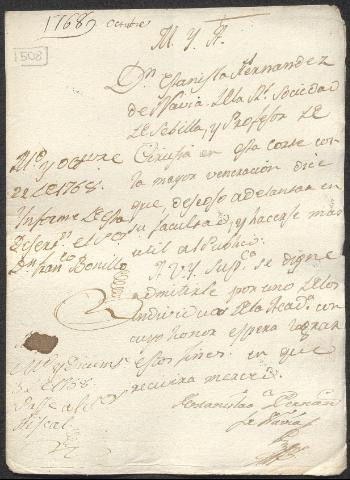 1768, Octubre
508
M. Y. S.
Dn. Estanislao Hernandez
de Navia de la Rl. Sociedad
de Sebilla, y Profesor de
Cirugia en esta corte con
la mayor veneracion dice
que deseoso adelantar en
su facultad, y hacerse mas
util al Publico.
A V. Y. Supca. se digne
admitirle por uno de los
Individuos de la Acada. con
cuyo honor espera lograr
estos fines. en que
recivira merced.
Estanislao Hernan
de Navia
Md. y Octubre
22 de 1768.
Informe de esta
el Sor.
Dn. Franco. Bonillo
Md. y
3 de 1768
Passe al Sor.
Fiscal.